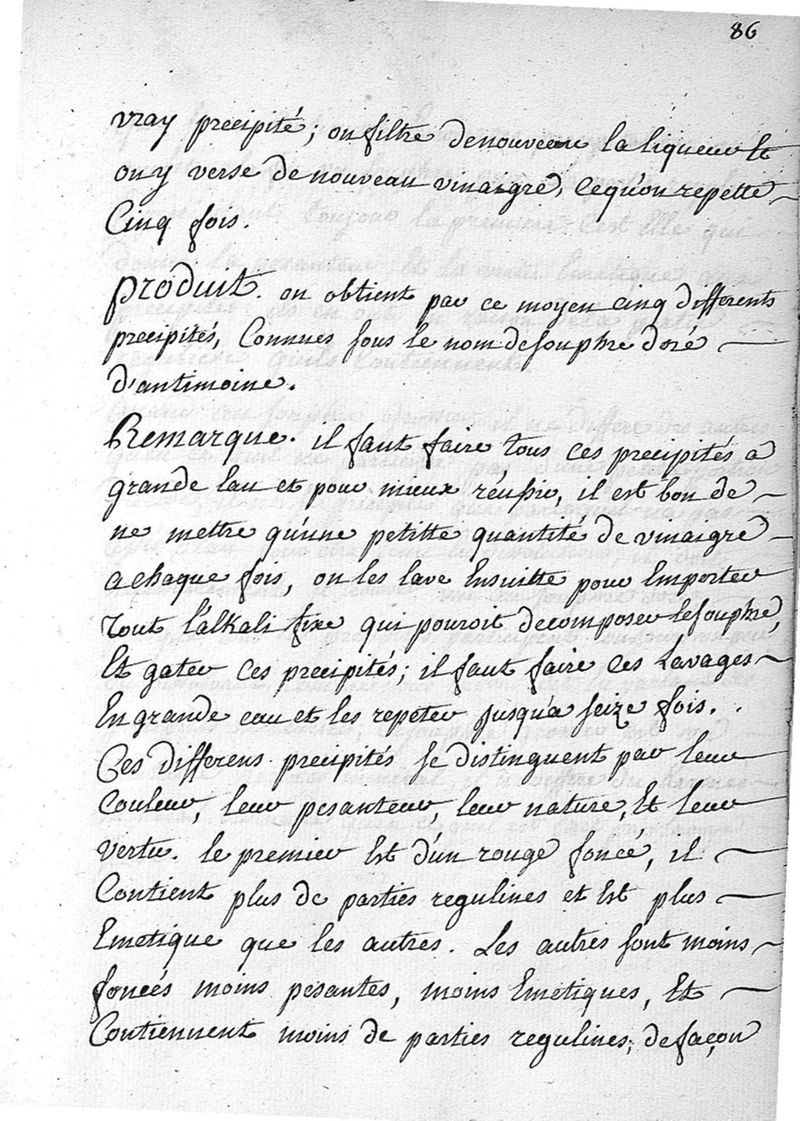 86
vray precipité; on filtre denouveau la liqueur et
on y verse denouveau vinaigre, cequ'on repette
Cinq fois.
produit. on obtient par ce moyen cinq differents
precipités, Connues sous le nom desouphre doré
d'antimoine.
Remarque. il faut faire tous ces precipités a
grande Eau et pour mieux réussir, il est bon de
ne mettre qu'une petitte quantité de vinaigre
achaque fois, on les lave Ensuitte pour Emporter
tout l'alkali fixe qui pouroit decomposer lesouphre,
Et gater ces precipités; il faut faire ces Lavages
En grande eau et les repeter jusqu'a seize fois.
Ces differens precipités se distinguent par leur
Couleur, leur pesanteur, leur nature, Et leur
vertu. le premier Est d'un rouge foncé, il
Contient plus de parties regulines et Est plus
Emetique que les autres. Les autres sont moins
foncés moins pesantes, moins Emetiques, Et
Contiennent moins de parties regulines; de façon